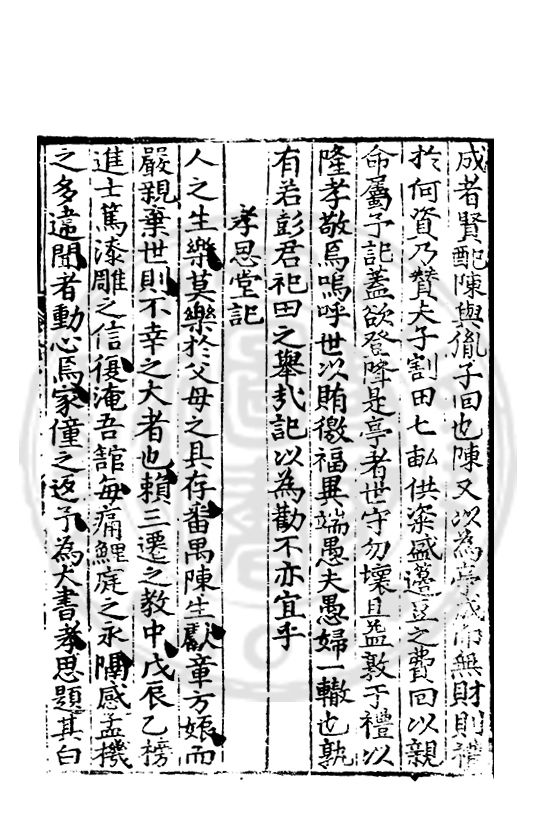 成者賢配陳與胤子回也陳又以為亭成而無財則禮
於何資乃贊夫子割田七畝供粢盛籩豆之費回以親
命屬予記蓋欲登降是亭者世守勿壞且益敦于禮以
隆孝敬焉嗚呼世以賄徼福異端愚夫愚婦一轍也孰
有若彭君祀田之舉哉記以為勸不亦宜乎
孝思堂記
人之生樂莫樂於父母之具存番禺陳生獻章方娠而
嚴親棄世則不幸之大者也賴三遷之教中戊辰乙榜
進士篤漆雕之信復淹吾館每痛鯉庭之永闃感孟機
之多違聞者動心焉家僮之返予為大書孝思題其白